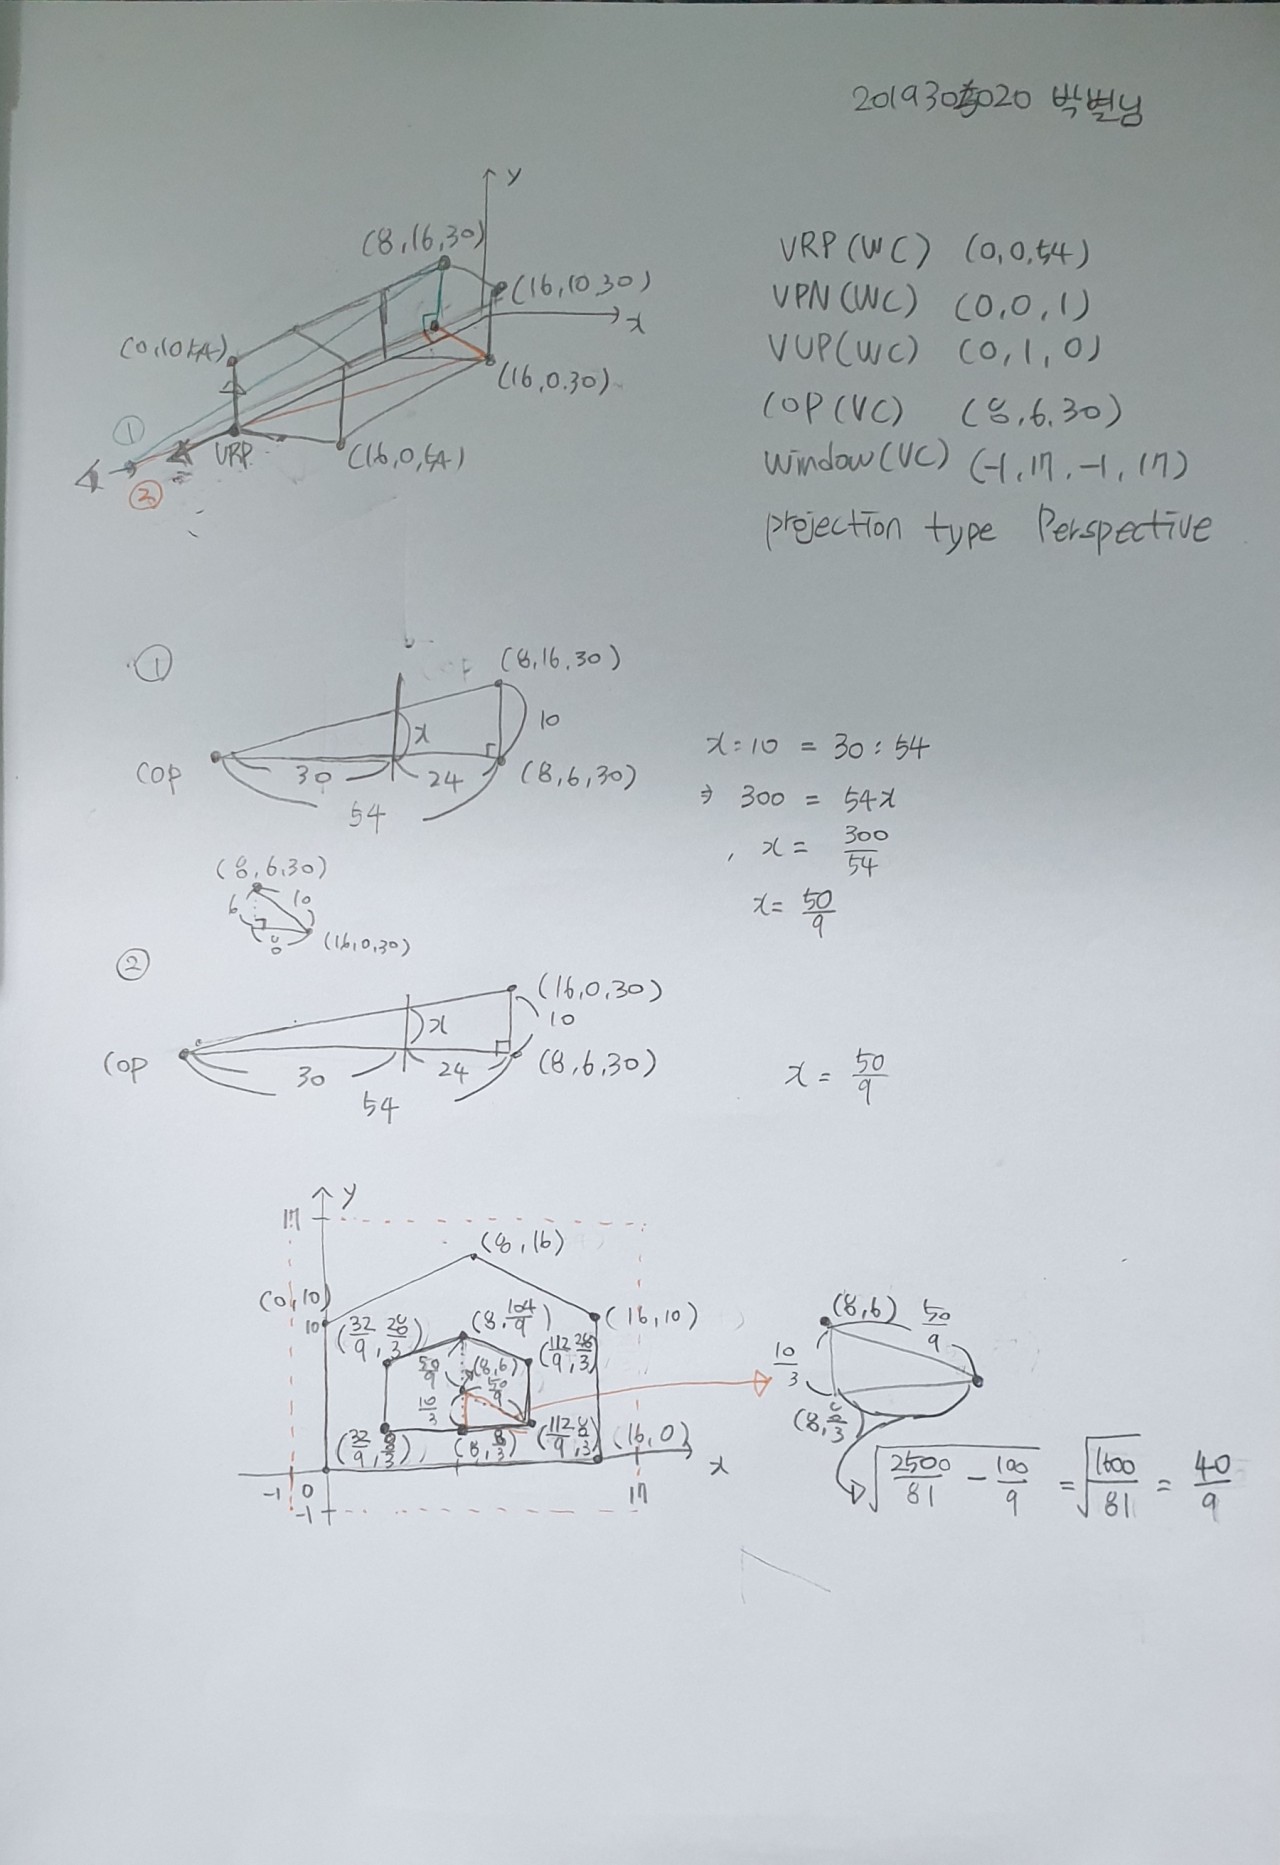 박별님
y
(8,16,30)
(16,10,30)
x
(0,10,54)
(16,0,30)
①
VRP
(16,0,54)
②
VRP (WC) (0,0,54)
VPN (WC) (0,0,1)
VUP (WC) (0,1,0)
COP (VC) (8,6,30)
Window (VC) (-1,17,-1,17)
projection type Perspective
①
(8,16,30)
10
x
COP
30
24
(8,6,30)
54
x : 10 = 30 : 54
⇒ 300 = 54x
x = 300/54
x = 50/9
(8,6,30)
6
10
8
(16,0,30)
②
(16,0,30)
x
10
COP
30
24
(8,6,30)
54
x = 50/9
y
17
(8,16)
(0,10)
10
(32/9, 28/3)
(8, 104/9)
(16,10)
(112/9, 28/3)
50/9
(8,6)
50/9
10/3
(32/9, 8/3)
(8, 8/3)
(112/9, 8/3)
(16,0)
x
-1
0
-1
17
(8,6)
50/9
10/3
(8, 8/3)
√(2500/81 - 100/9) = √(1600/81) = 40/9